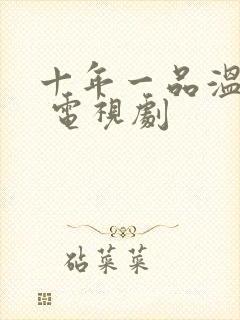 十年一品溫
電視劇
砧菜菜